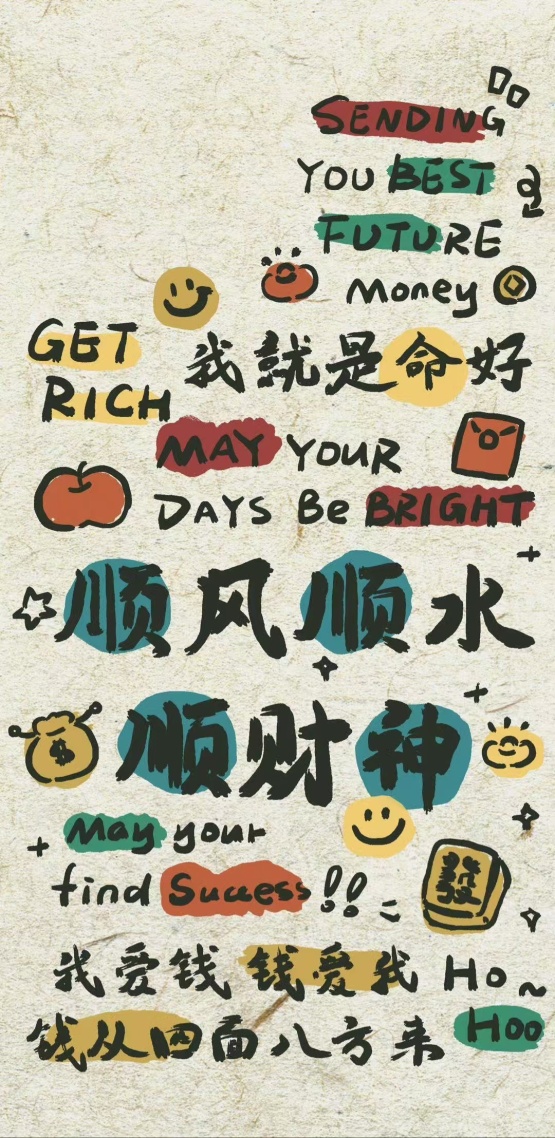 SENDING
YOU BEST
FUTURE
Money
GET
RICH
我就是命好
MAY YOUR
DAYS Be BRIGHT
顺风顺水
顺财神
$
May your
find Success!!
發
我爱钱 钱爱我 Ho~
Hoo
钱从四面八方来